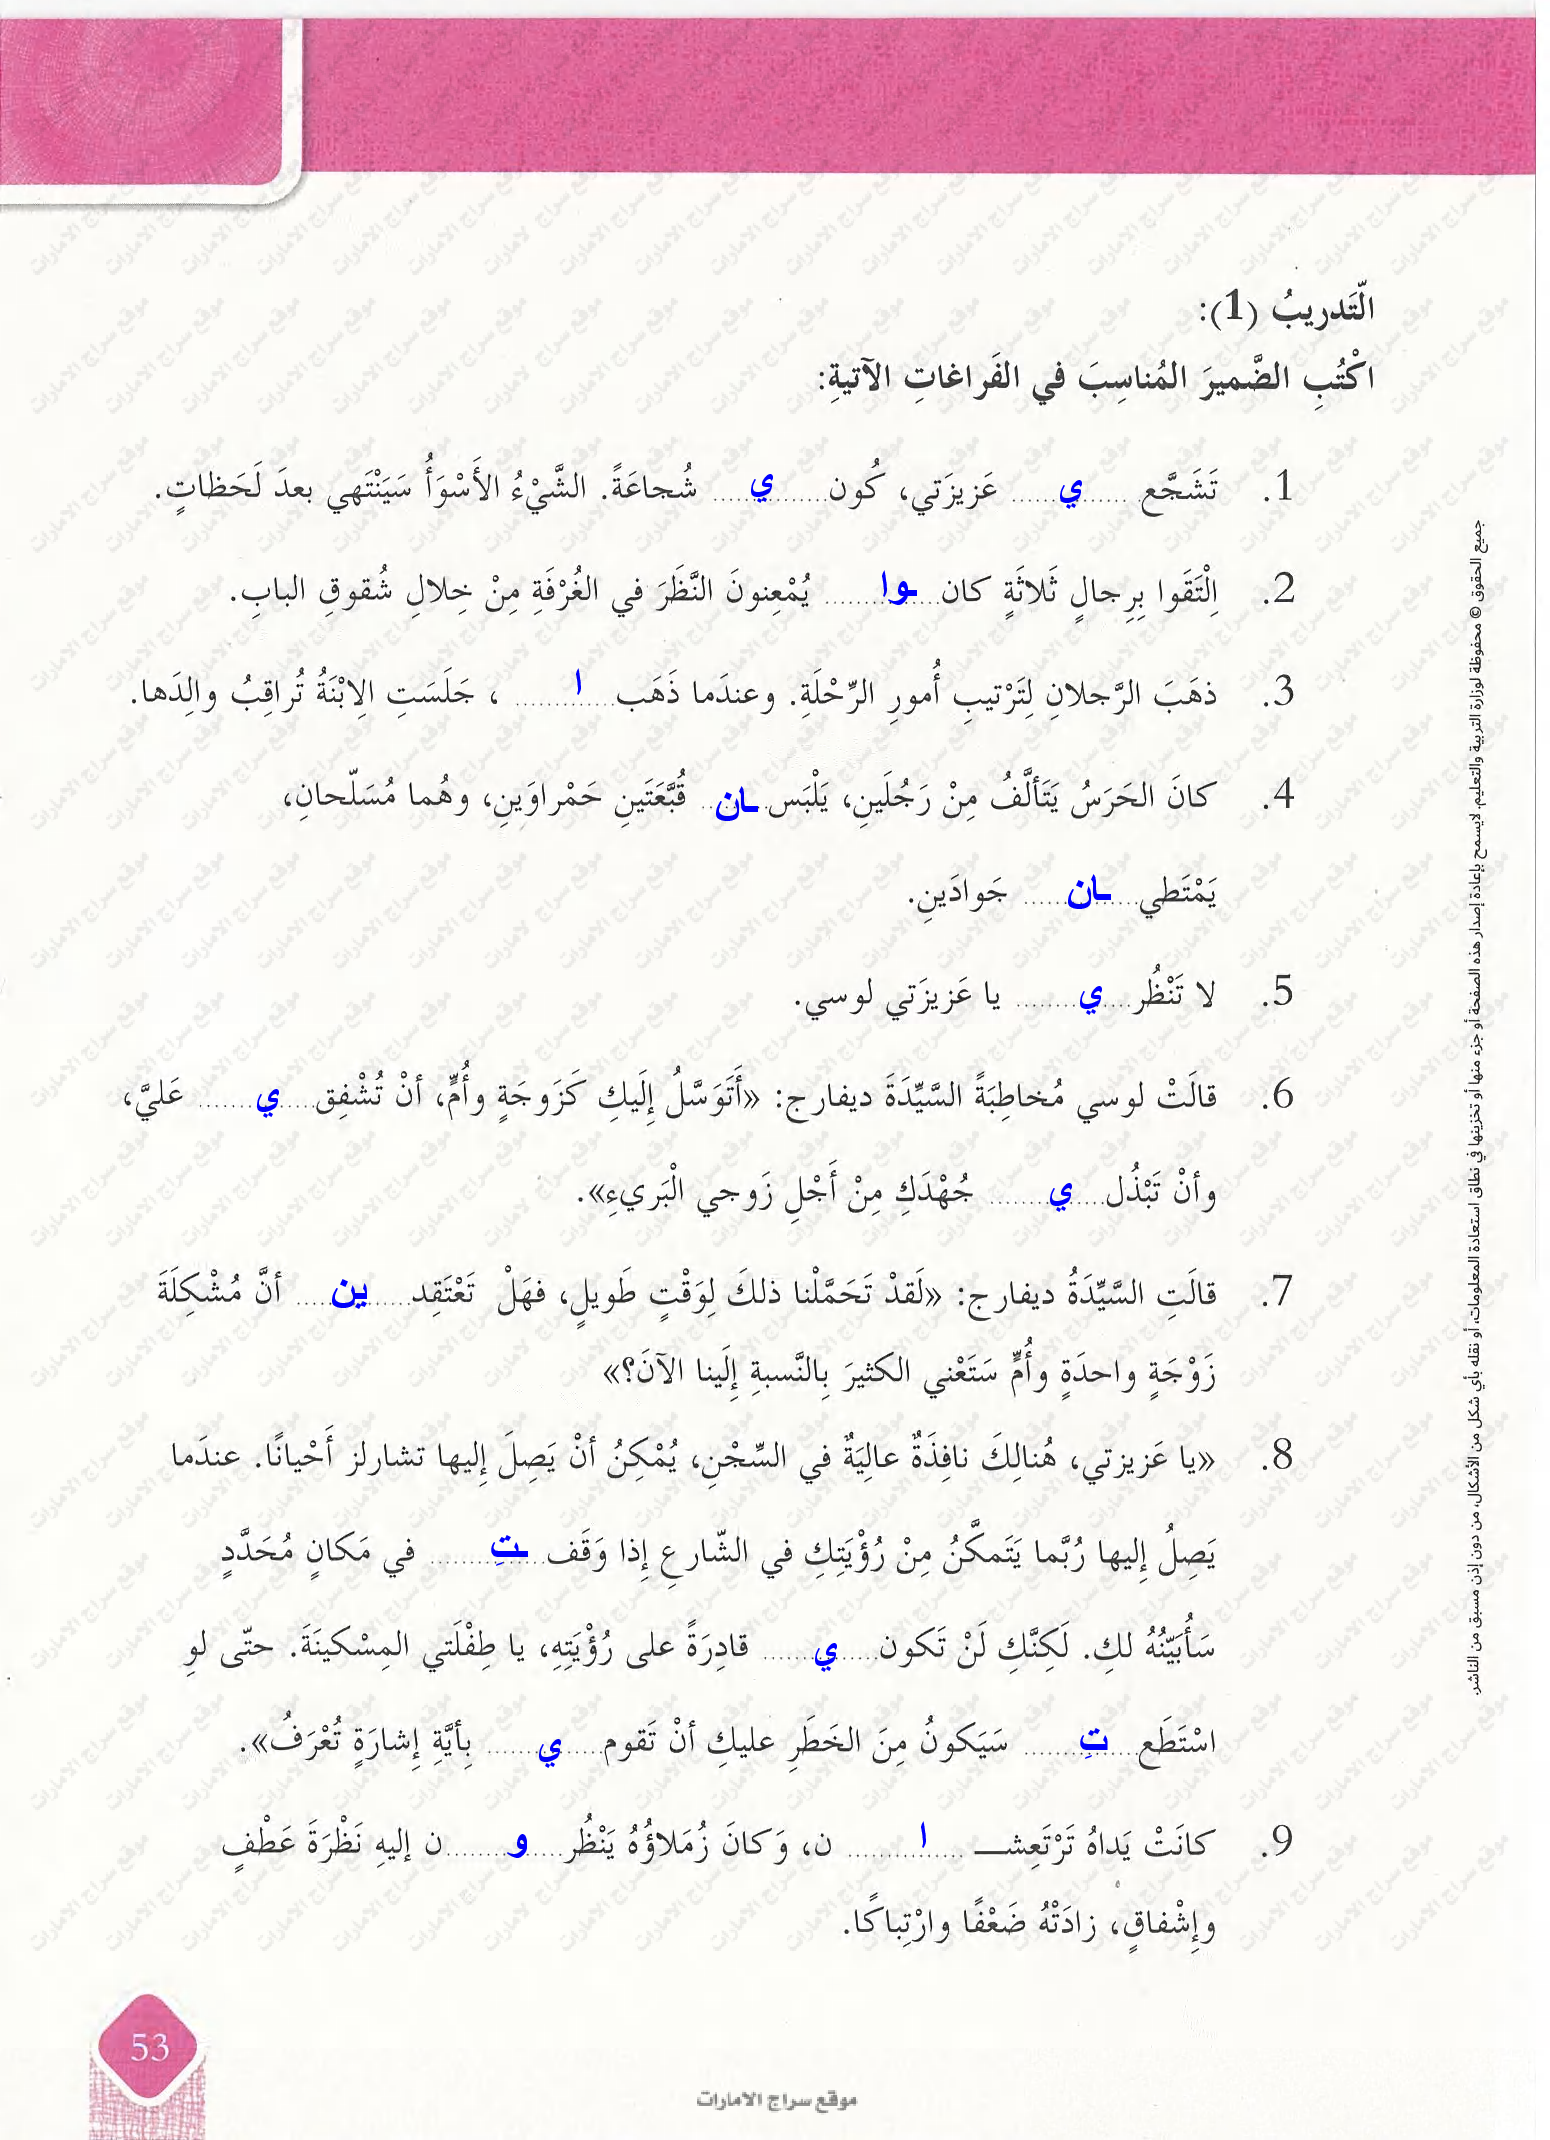 التَّدريبُ (1):
اكْتُبِ الضَّميرَ المُناسِبَ في الفَراغاتِ الآتيةِ:
1. تَشَجَّع ......ي...... عَزيزَتي، كُون......ي...... شُجاعَةً. الشَّيْءُ الأَسْوَأُ سَيَنْتَهي بعدَ لَحَظاتٍ.
2. اِلْتَقَوا بِرِجالٍ ثَلاثَةٍ كان......ـوا...... يُمْعِنونَ النَّظَرَ في الغُرْفَةِ مِنْ خِلالِ شُقوقِ البابِ.
3. ذهَبَ الرَّجلانِ لِتَرْتيبِ أُمورِ الرِّحْلَةِ. وعندَما ذَهَب......ا......، جَلَسَتِ الاِبْنَةُ تُراقِبُ والِدَها.
4. كانَ الحَرَسُ يَتَألَّفُ مِنْ رَجُلَينِ، يَلْبَس......ـان...... قُبَّعَتَينِ حَمْراوَينِ، وهُما مُسَلّحانِ،
يَمْتَطي......ـان...... جَوادَينِ.
5. لا تَنْظُر......ي...... يا عَزيزَتي لوسي.
6. قالَتْ لوسي مُخاطِبَةً السَّيِّدَةَ ديفارج: «أَتَوَسَّلُ إِلَيكِ كَزَوجَةٍ وأُمٍّ، أنْ تُشْفِق......ي...... عَليَّ،
وأنْ تَبْذُل......ي...... جُهْدَكِ مِنْ أَجْلِ زَوجي الْبَريءِ».
7. قالَتِ السَّيِّدَةُ ديفارج: «لَقدْ تَحَمَّلْنا ذلكَ لِوَقْتٍ طَويلٍ، فهَلْ تَعْتَقِد......ين...... أنَّ مُشْكِلَةَ
زَوْجَةٍ واحدَةٍ وأُمٍّ سَتَعْني الكثيرَ بِالنَّسبةِ إِلَينا الآنَ؟»
8. «يا عَزيزتي، هُنالِكَ نافِذَةٌ عالِيَةٌ في السِّجْنِ، يُمْكِنُ أنْ يَصِلَ إِليها تشارلز أَحْيانًا. عندَما
يَصِلُ إِليها رُبَّما يَتَمكَّنُ مِنْ رُؤْيَتِكِ في الشّارعِ إِذا وَقَف......ـتِ...... في مَكانٍ مُحَدَّدٍ
سَأُبَيّنُهُ لكِ. لَكِنَّكِ لَنْ تَكون......ي...... قادِرَةً على رُؤْيَتِهِ، يا طِفْلَتي المِسْكينَةَ. حتّى لوِ
اسْتَطَع......تِ...... سَيَكونُ مِنَ الخَطَرِ عليكِ أنْ تَقوم......ي...... بِأيَّةِ إِشارَةٍ تُعْرَفُ».
9. كانَتْ يَداهُ تَرْتَعِشـ......ا......ن، وَكانَ زُمَلاؤُهُ يَنْظُر......و......ن إليهِ نَظْرَةَ عَطْفٍ
وإِشْفاقٍ، زادَتْهُ ضَعْفًا وارْتِباكًا.
جميع الحقوق © محفوظة لوزارة التربية والتعليم. لايسمح بإعادة إصدار هذه الصفحة أو جزء منها أو تخزينها في نطاق استعادة المعلومات، أو نقله بأي شكل من الأشكال، من دون إذن مسبق من الناشر.
53
موقع سراج الامارات